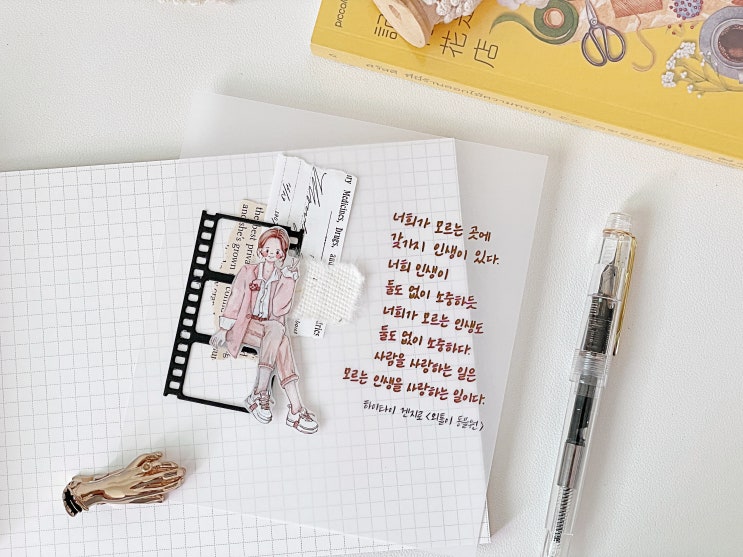 너희가 모르는 곳에
갖가지 인생이 있다.
너희 인생이
둘도 없이 소중하듯
너희가 모르는 인생도
둘도 없이 소중하다.
사람을 사랑하는 일은
모르는 인생을 사랑하는 일이다.
하이타니 겐지로 <외톨이 동물원>
Medicines, Drugs,
and she's grown
花
店